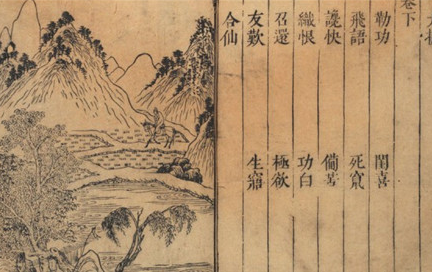 卷下
勒功 閨喜
飛語 死竄
讒快 備苦
織恨 功白
召還 極欲
友歎 生寤
合仙